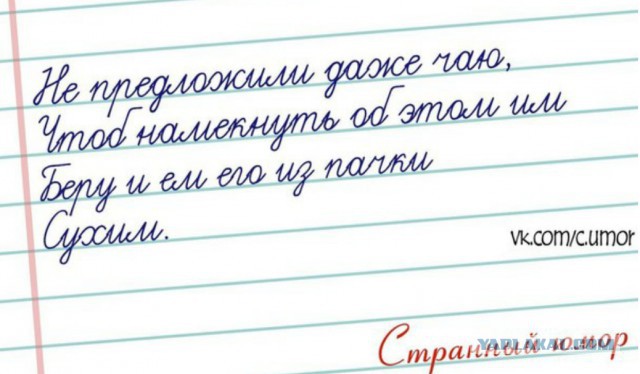 Не предложили даже чаю,
Чтоб намекнуть об этом им
Беру и ем его из пачки
Сухим.
vk.com/c.umor
Странный юмор
YAPLAKAL.COM